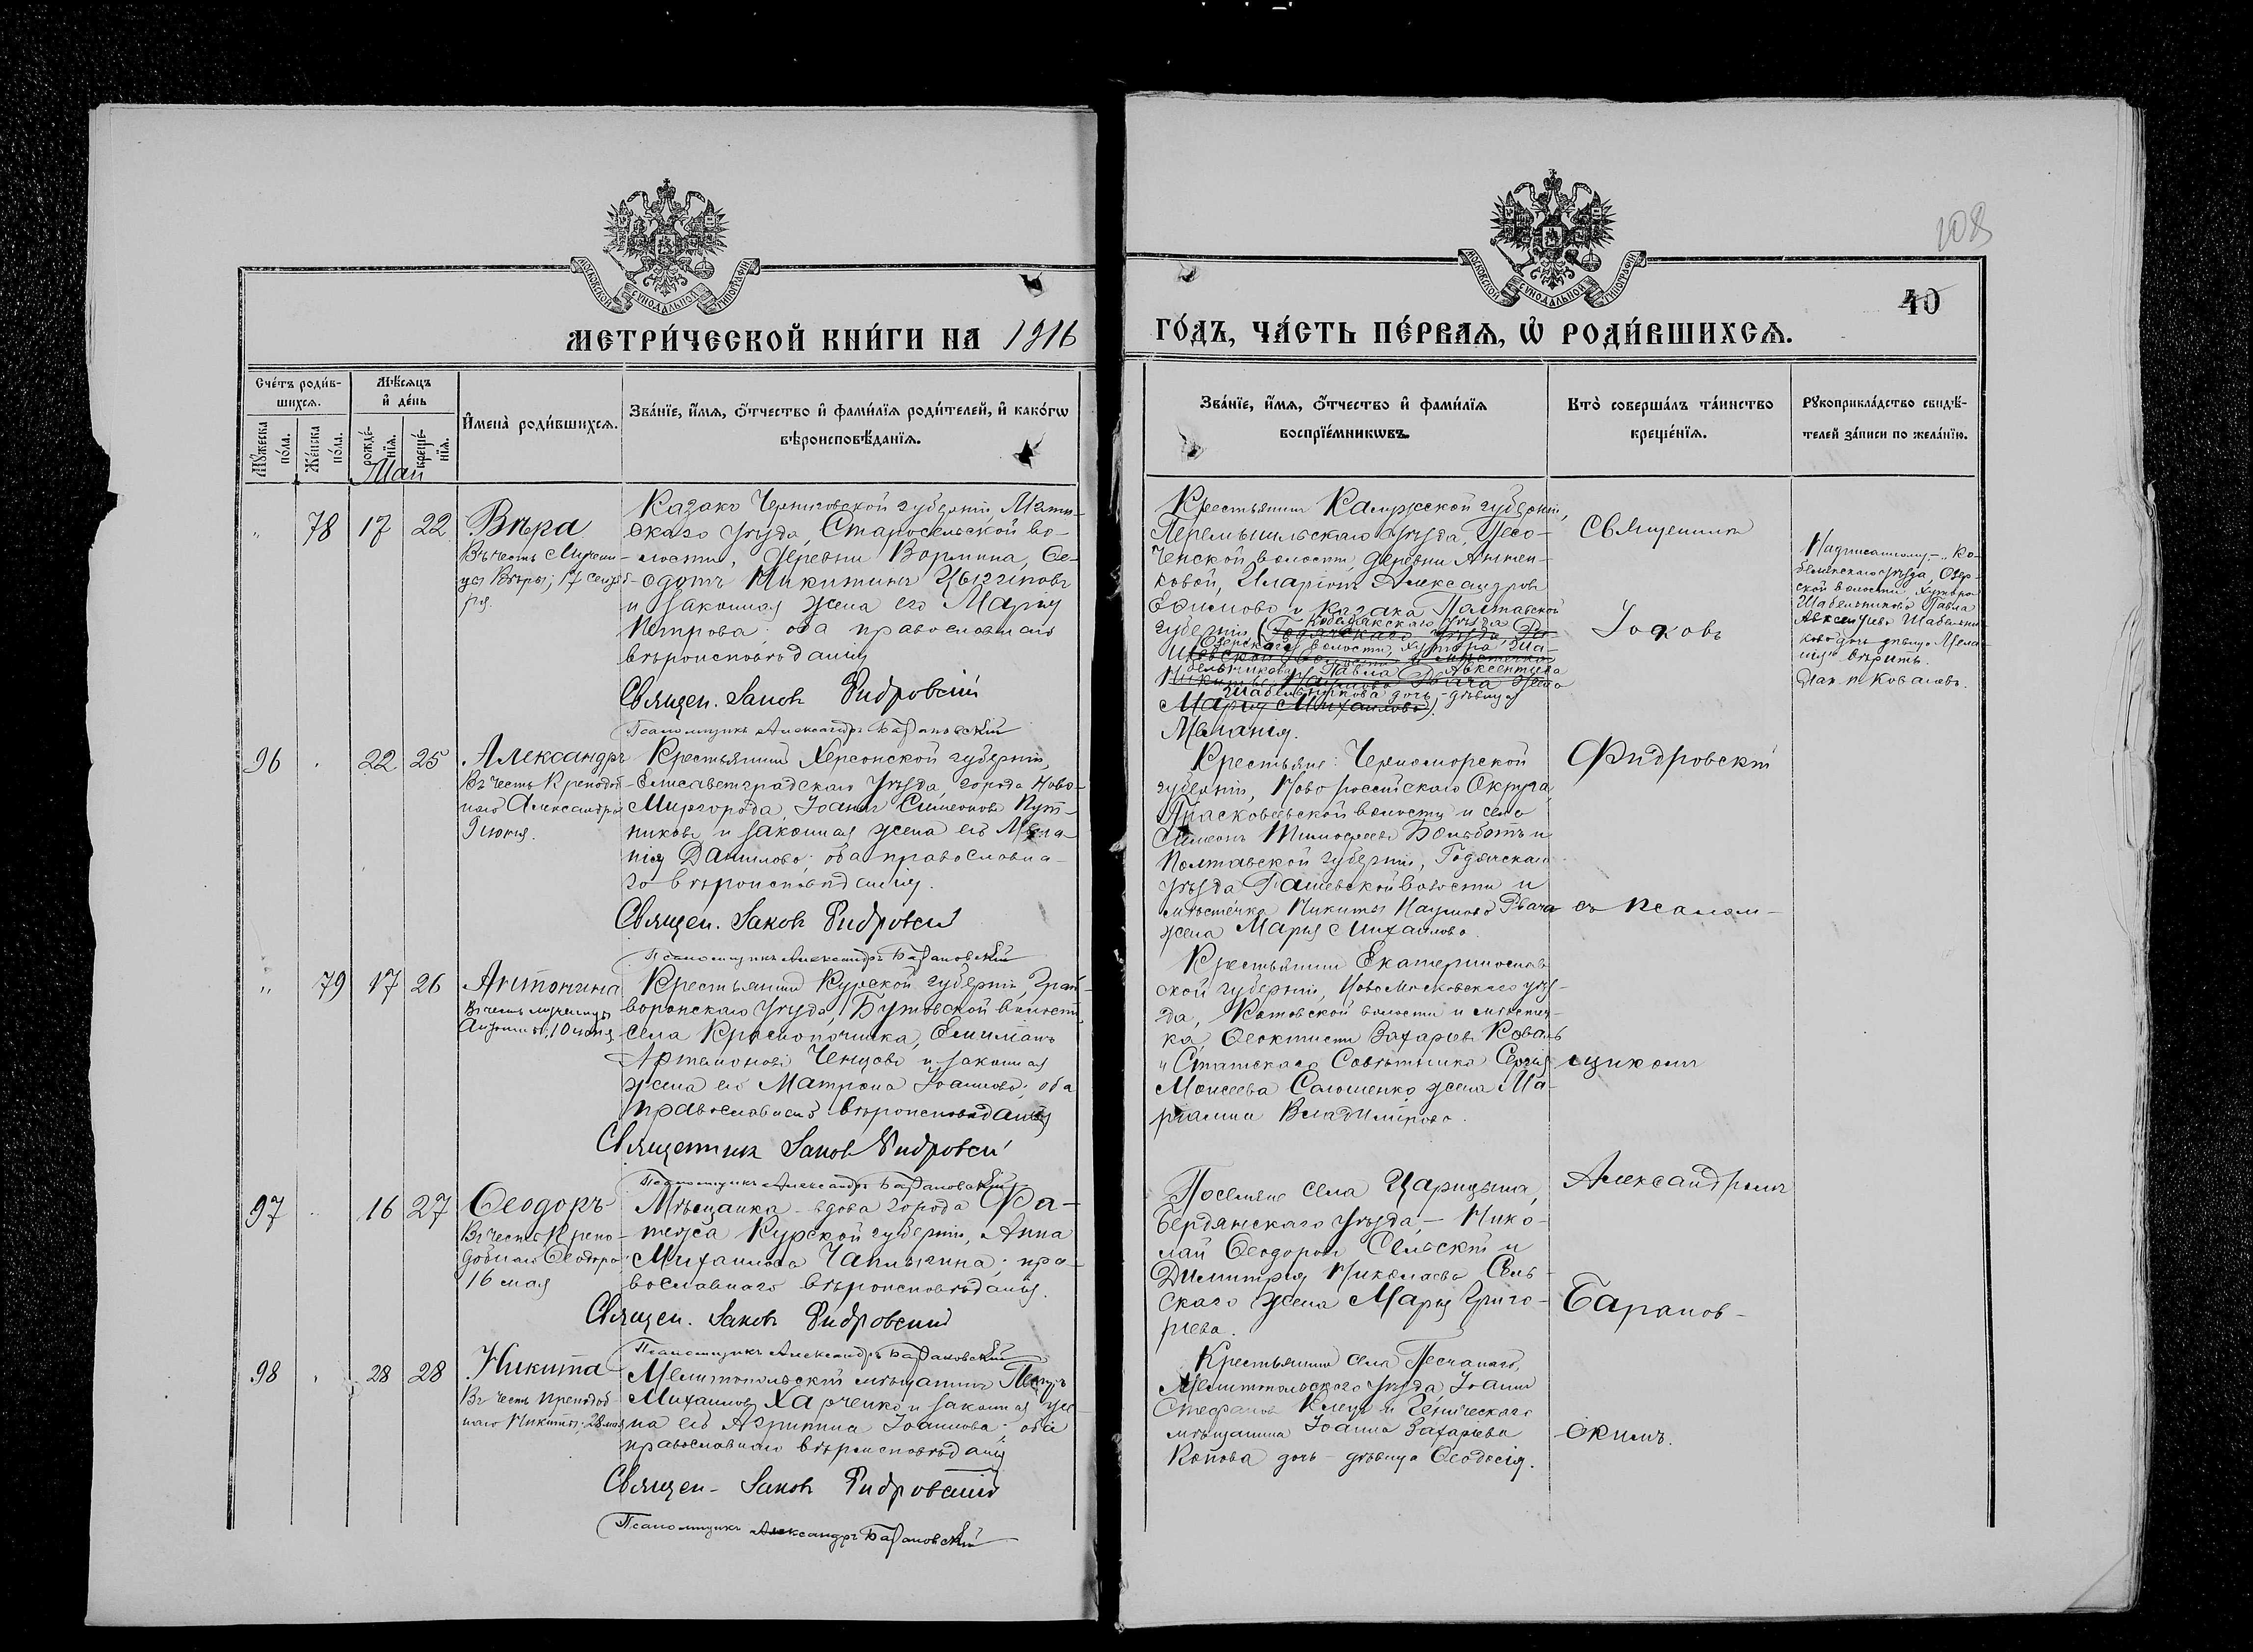 108
МОСКОВСКОЙ СУНОДАЛЬНОЙ ТИПОГРАФІИ
МОСКОВСКОЙ СУНОДАЛЬНОЙ ТИПОГРАФІИ
40
МЕТРИ́ЧЕСКОЙ КНИ́ГИ НА 1916
ГО́ДЪ, ЧА́СТЬ ПЕ́РВАѦ, Ѡ҆ РОДИ́ВШИХСѦ.
Сче́тъ роди́в-
шихсѧ.
Мѣ́сѧцъ
и҆ де́нь
Мꙋ́жеска
по́ла.
Же́нска
по́ла.
рожде́-
нїѧ.
креще́-
нїѧ.
И҆мена̀ роди́вшихсѧ.
Зва́нїе, и҆́мѧ, ѻ҆́тчество и҆ фами́лїѧ роди́телей, и҆ како́гѡ
вѣроисповѣ́данїѧ.
Зва́нїе, и҆́мѧ, ѻ҆́тчество и҆ фами́лїѧ
воспрїе́мникѡвъ.
Кто̀ соверша́лъ та́инство
креще́нїѧ.
Рꙋкоприкла́дство свидѣ́-
телей за́писи по жела́нїю.
Май
" 78 17 22
Вѣра
Въ честь Мучени-
цы Вѣры; 17 сентяб-
ря.
Казакъ Черниговской губерніи Мглин-
скаго уѣзда, Старосельской во-
лости, деревни Вормина, Ѳе-
одотъ Никитинъ Цыганковъ
и законная жена его Марія
Петрова: оба православнаго
вѣроисповѣданія
Священ. Іаковъ Фидровскій
Псаломщикъ Александръ Барановскій
Крестьянинъ Калужской губерніи,
Перемышльскаго уѣзда, Песо-
ченской волости, деревни
Иларіонъ Александровъ
Ефимовъ и казака Полтавской
губерніи (Гадячскаго уѣзда, Ра-
Кобелякскаго уѣзда
Озерской волости, хутора Ша-
шевской волости и мѣстечка
бельникова Павла Авксентьева
Никиты Наумова Рвача жена
Шабельникова дочь - дѣвица
Марія Михаилова).
Меланія.
Священникъ
Іаковъ
Надписанному - "Ко-
белякскаго уѣзда, Озер-
ской волости, хутора
Шабельникова Павла
Авксентьева Шабельни-
кова дочь дѣвица Мела-
нія" вѣрить.
96 . 22 25
Александръ
Въ честь Преподоб-
наго Александра
9 іюня.
Крестьянинъ Херсонской губерніи,
Елисаветградскаго уѣзда, города Ново-
Миргорода, Іоаннъ Симеоновъ Пут-
никовъ и законная жена его Мела-
нія Данилова: оба православна-
го вѣроисповѣданія.
Священ. Іаковъ Фидровскій
Псаломщикъ Александръ Барановскій
Крестьяне: Черноморской
губерніи, Новороссійскаго Округа,
Прасковеевской волости и села
Симеонъ Тимофеевъ и
Полтавской губерніи, Гадячскаго
уѣзда Рашевской волости и
мѣстечка Никиты Наумова Рвача
жена Марія Михаилова.
Фидровскій
съ псалом-
" 79 17 26
Антонина
Въ честь мученицы
Антонины; 10 іюня
Крестьянинъ Курской губерніи Грай-
воронскаго уѣзда, Бутовской волости,
села
Артамоновъ Ченцовъ и законная
жена его Матрона Іоаннова; оба
православнаго вѣроисповѣданія
Священникъ Іаковъ Фидровскій
Псаломщикъ Александръ Барановскій
Крестьянинъ Екатеринослав-
ской губерніи, Новомосковскаго уѣз-
да, Котовской волости и мѣстеч-
ка, Ѳеоктистъ Захаріевъ Коваль
и Статскаго Совѣтника Сергія
Моисеева Саломенко жена Ма-
ріамна Владимірова.
щикомъ
97 . 16 27
Ѳеодоръ
Въ честь Препо-
добнаго Ѳеодора
16 мая
Мѣщанка - вдова города Фа-
тежа Курской губерніи, Анна
Михаилова Чаплыгина; пра-
вославнаго вѣроисповѣданія.
Священ. Іаковъ Фидровскій
Псаломщикъ Александръ Барановскій
Поселяне села Царицына,
Бердянскаго уѣзда, - Нико-
лай Ѳеодоровъ Сельскій и
Димитрія Николаева Сель-
скаго жена Марія Григо-
рьева.
Александромъ
Баранов-
98 . 28 28
Никита
Въ честь преподоб-
наго Никиты; 28 мая
Мелитопольскій мѣщанинъ Петръ
Михаиловъ Харченко и законная же-
на его Агриппина Іоаннова; оба
православнаго вѣроисповѣданія
Священ. Іаковъ Фидровскій
Псаломщикъ Александръ Барановскій
Крестьянинъ села Песчанаго,
Мелитопольскаго уѣзда Іоаннъ
Стефановъ и Геническаго
мѣщанина Іоанна Захаріева
Копова дочь - дѣвица Ѳеодосія.
скимъ.